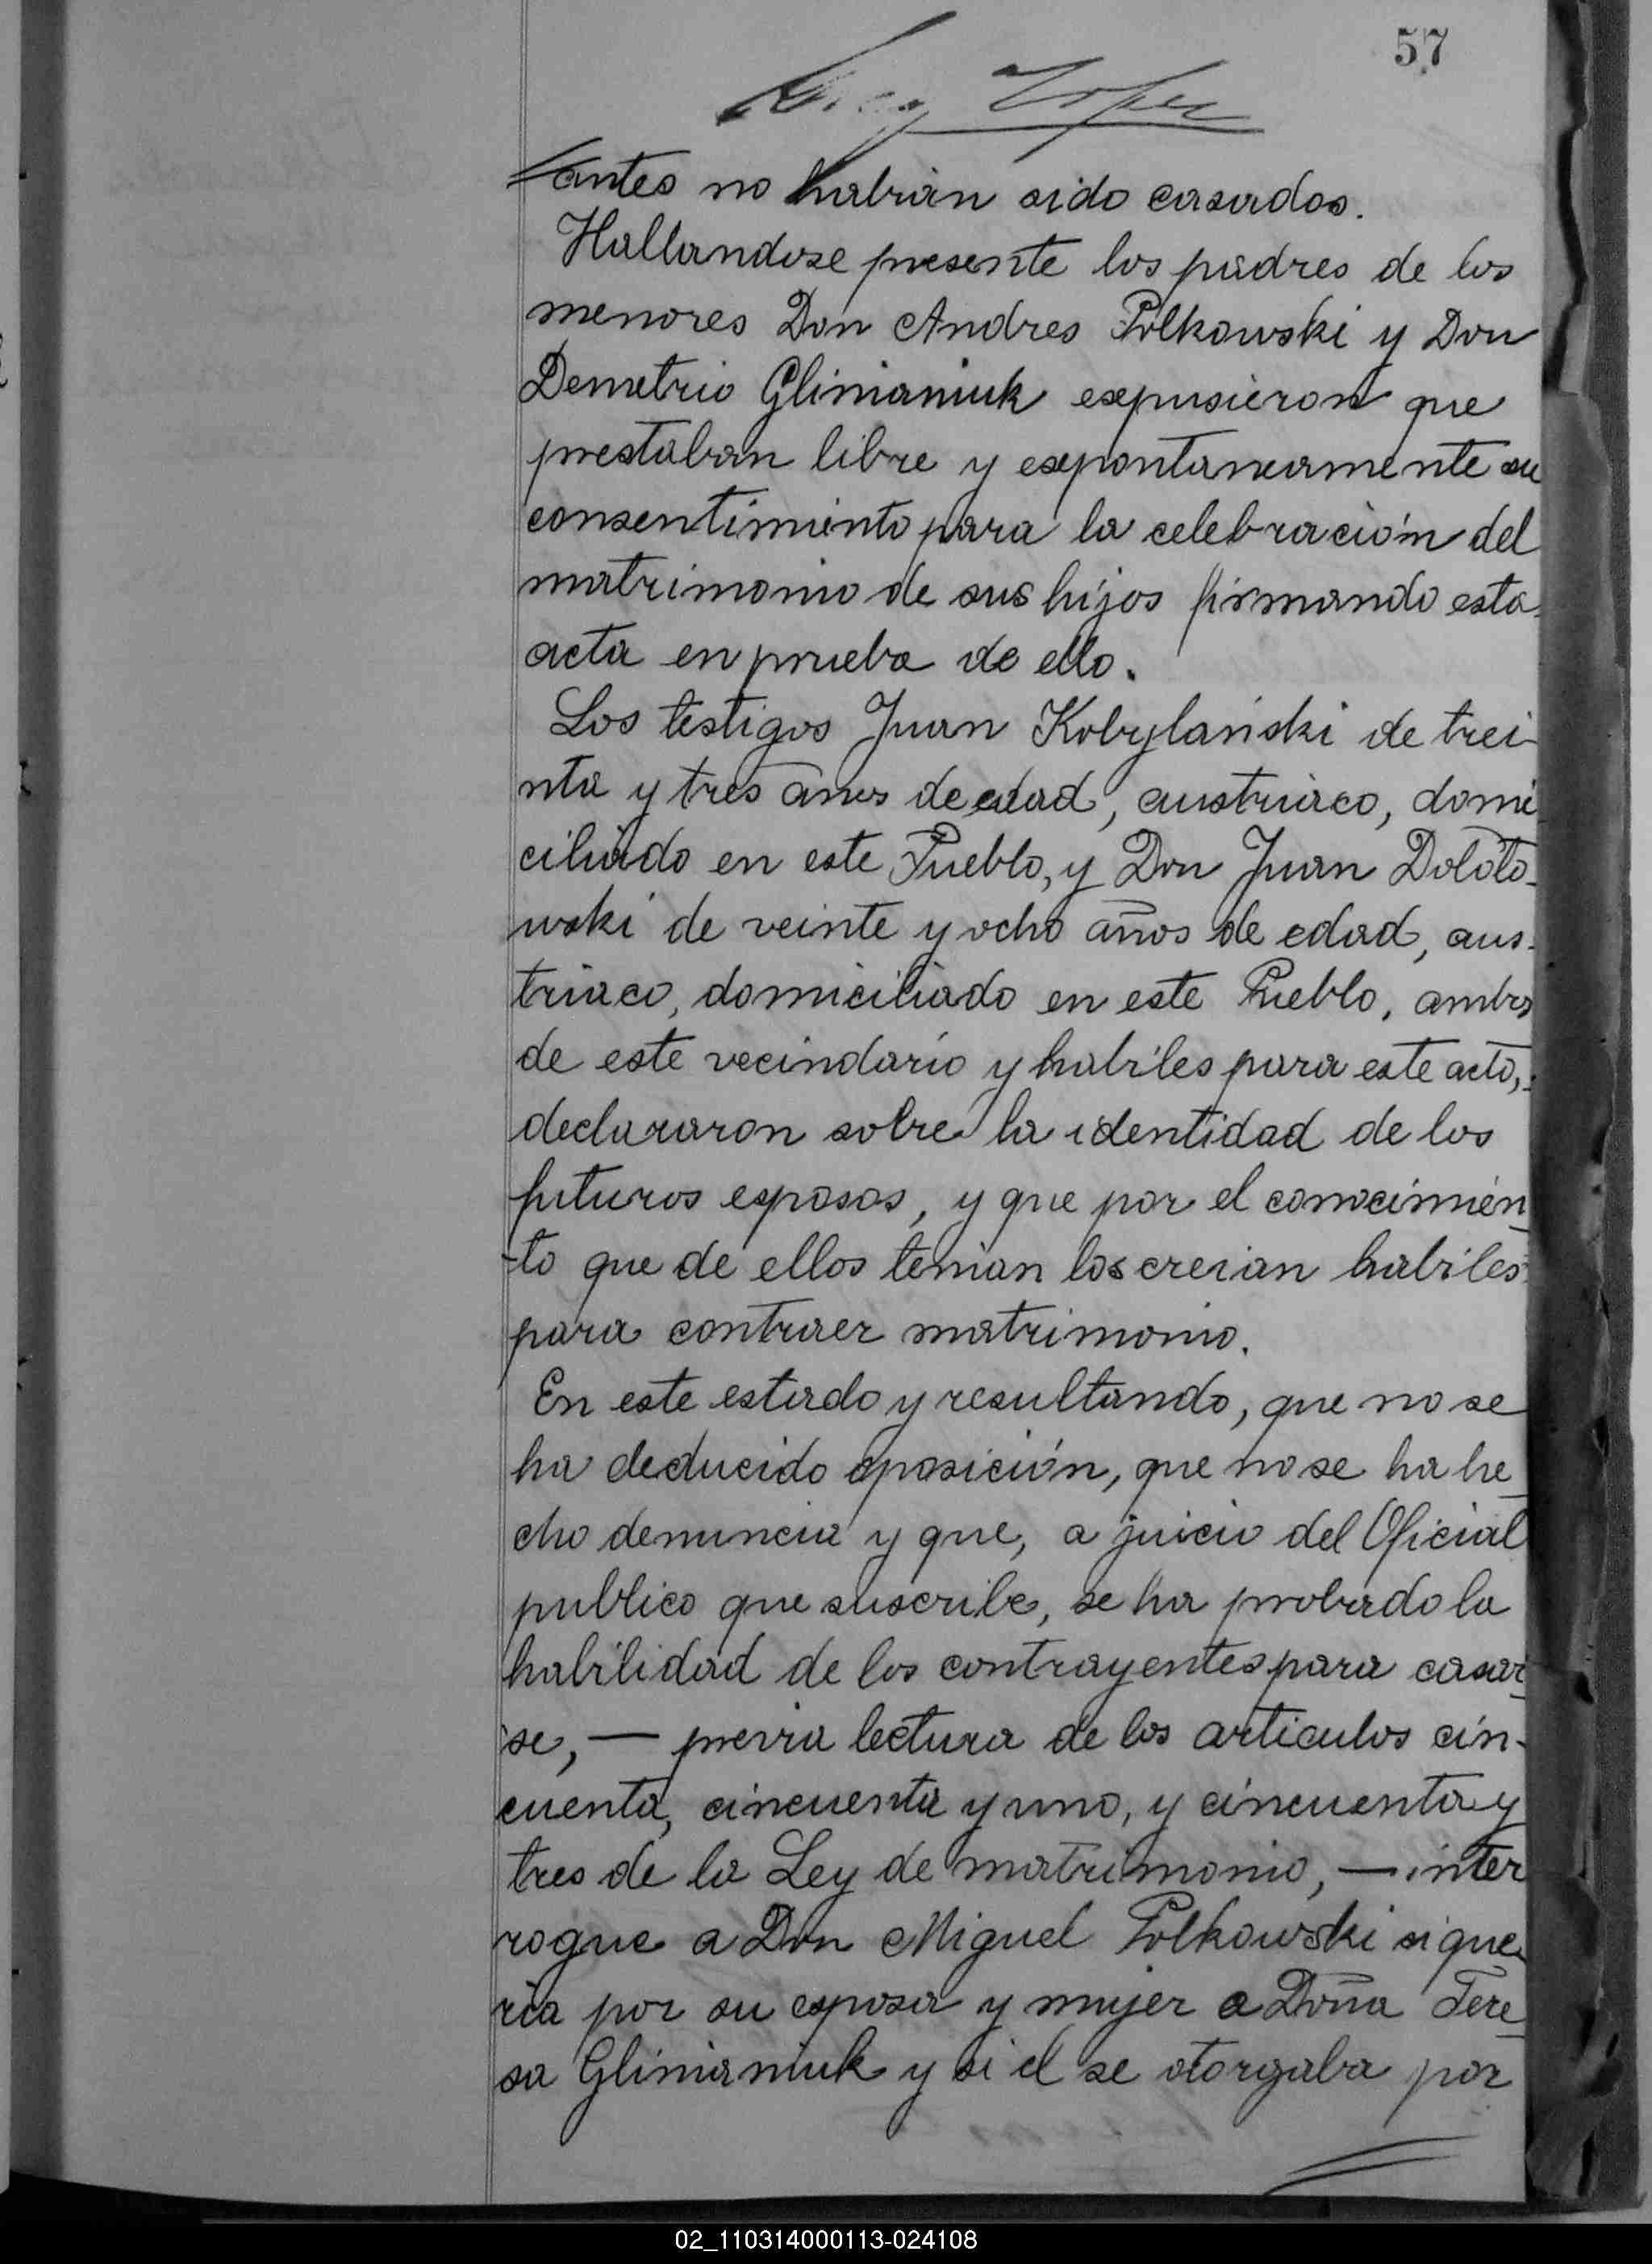 57
Lopez
antes no habian sido casados.
Hallandose presente los padres de los
menores Don Andres Polkowski y Don
Demetrio Glinianiuk expusieron que
prestaban libre y expontaneamente su
consentimiento para la celebración del
matrimonio de sus hijos firmando esta
acta en prueba de ello.
Los testigos Juan Kobylański de trei-
nta y tres años de edad, austriaco, domi
ciliado en este Pueblo, y Don Juan Doloto-
wski de veinte y ocho años de edad, aus-
triaco, domiciliado en este Pueblo, ambos
de este vecindario y habiles para este acto,
declararon sobre la identidad de los
futuros esposos, y que por el conocimien
-to que de ellos tenian los creian habiles
para contraer matrimonio.
En este estado y resultando, que no se
ha deducido oposición, que no se ha he
cho denuncia y que, a juicio del Oficial
publico que suscribe, se ha probado la
habilidad de los contrayentes para casar
se, — previa lectura de los articulos cin-
cuenta, cincuenta y uno, y cincuenta y
tres de la Ley de matrimonio, — inter
rogue a Don Miguel Polkowski si que
ria por su esposa y mujer a Doña Tere
sa Glinianiuk y si el se otorgaba por
02_110314000113-024108